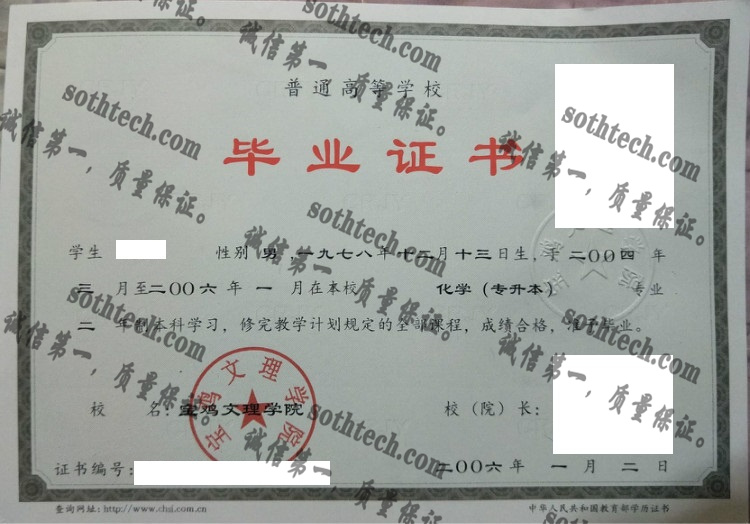 普通高等学校
毕业证书
学生 性别 男 ,一九七八年十二月十三日生,于二〇〇四 年
三 月至二〇〇六 年 一 月在本校 化学（专升本） 专业
二 年制本科学习，修完教学计划规定的全部课程，成绩合格，准予毕业。
校 名:宝鸡文理学院 校（院）长:
宝鸡文理学院
证书编号: 二〇〇六 年 一 月 二 日
查询网址: http://www.chsi.com.cn 中华人民共和国教育部学历证书
sothtech.com
诚信第一，质量保证。
sothtech.com
诚信第一，质量保证。
sothtech.com
诚信第一，质量保证。
sothtech.com
诚信第一，质量保证。
sothtech.com
诚信第一，质量保证。
sothtech.com
诚信第一，质量保证。
sothtech.com
诚信第一，质量保证。